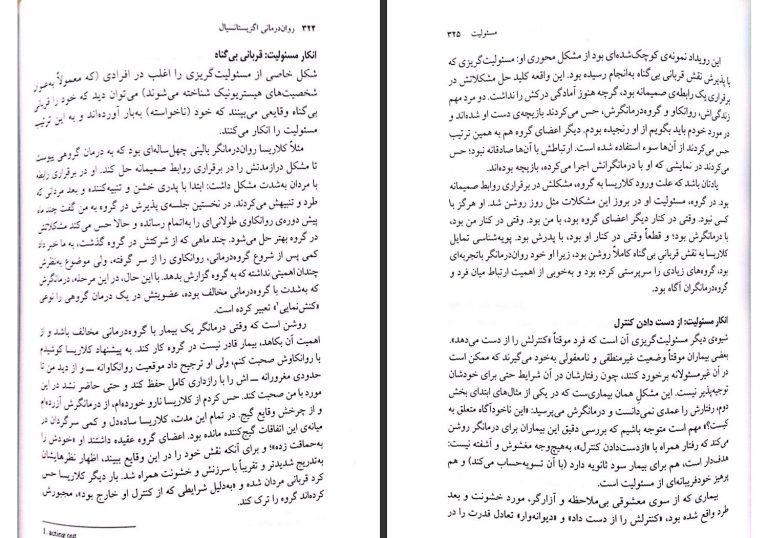 ۳۲۴ روان‌درمانی اگزیستانسیال
انکار مسئولیت: قربانی بی‌گناه
شکل خاصی از مسئولیت‌گریزی را اغلب در افرادی (که معمولاً به‌عنوان
شخصیت‌های هیستریونیک شناخته می‌شوند) می‌توان دید که خود را قربانی
بی‌گناه وقایعی می‌بینند که خود (ناخواسته) به‌بار آورده‌اند و به این ترتیب
مسئولیت را انکار می‌کنند.
مثلاً کلاریسا روان‌درمانگر بالینی چهل‌ساله‌ای بود که به درمان گروهی پیوست
تا مشکل درازمدتش را در برقراری روابط صمیمانه حل کند. او در برقراری رابطه
با مردان به‌شدت مشکل داشت: ابتدا با پدری خشن و تنبیه‌کننده و بعد مردانی که
طرد و تنبیهش می‌کردند. در نخستین جلسه‌ی پذیرش در گروه به من گفت چند ماه
پیش دوره‌ی روانکاوی طولانی‌ای را به‌اتمام رسانده و حالا حس می‌کند مشکلاتش
در گروه بهتر حل می‌شود. چند ماهی که از شرکتش در گروه گذشت، به ما خبر داد
کمی پس از شروع گروه‌درمانی، روانکاوی را از سر گرفته، ولی موضوع به‌نظرش
چندان اهمیتی نداشته که به گروه گزارش بدهد. با این حال، در این مرحله، درمانگرش
که به‌شدت با گروه‌درمانی مخالف بوده، عضویتش در یک درمان گروهی را نوعی
«کنش‌نمایی»۱ تعبیر کرده است.
روشن است که وقتی درمانگر یک بیمار با گروه‌درمانی مخالف باشد و از
اهمیت آن بکاهد، بیمار قادر نیست در گروه کار کند. به پیشنهاد کلاریسا کوشیدم
با روانکاوش صحبت کنم، ولی او ترجیح داد موقعیت روانکاوانه ــ و از دید من تا
حدودی مغرورانه ــ اش را با رازداری کامل حفظ کند و حتی حاضر نشد در این
مورد با من صحبت کند. حس کردم از کلاریسا نارو خورده‌ام، از درمانگرش آزرده‌ام
و از چرخش وقایع گیج. در تمام این مدت، کلاریسا ساده‌دل و کمی سرگردان در
میانه‌ی این اتفاقات گیج‌کننده مانده بود. اعضای گروه عقیده داشتند او «خودش را
به‌حماقت زده»؛ و برای آنکه نقش خود را در این وقایع ببیند، اظهار نظرهایشان
به‌تدریج شدیدتر و تقریباً با سرزنش و خشونت همراه شد. بار دیگر کلاریسا حس
کرد قربانی مردان شده و «به‌دلیل شرایطی که از کنترل او خارج بود»، مجبورش
کرده‌اند گروه را ترک کند.
1. acting out
مسئولیت ۳۲۵
این رویداد نمونه‌ی کوچک‌شده‌ای بود از مشکل محوری او: مسئولیت‌گریزی که
با پذیرش نقش قربانی بی‌گناه به‌انجام رسیده بود. این واقعه کلید حل مشکلاتش در
برقراری یک رابطه‌ی صمیمانه بود، گرچه هنوز آمادگی درکش را نداشت. دو مرد مهم
زندگی‌اش، روانکاو و گروه‌درمانگرش، حس می‌کردند بازیچه‌ی دست او شده‌اند و
در مورد خودم باید بگویم از او رنجیده بودم. دیگر اعضای گروه هم به همین ترتیب
حس می‌کردند از آن‌ها سوء استفاده شده است. ارتباطش با آن‌ها صادقانه نبود؛ حس
می‌کردند در نمایشی که او با درمانگرانش اجرا می‌کرده، بازیچه بوده‌اند.
یادتان باشد که علت ورود کلاریسا به گروه، مشکلش در برقراری روابط صمیمانه
بود. در گروه، مسئولیت او در بروز این مشکلات مثل روز روشن شد. او هرگز با
کسی نبود. وقتی در کنار دیگر اعضای گروه بود، با من بود. وقتی در کنار من بود،
با درمانگرش بود؛ و قطعاً وقتی در کنار او بود، با پدرش بود. پویه‌شناسی تمایل
کلاریسا به نقش قربانیِ بی‌گناه کاملاً روشن بود، زیرا او خود روان‌درمانگر باتجربه‌ای
بود، گروه‌های زیادی را سرپرستی کرده بود و به‌خوبی از اهمیت ارتباط میان فرد و
گروه‌درمانگران آگاه بود.
انکار مسئولیت: از دست دادن کنترل
شیوه‌ی دیگر مسئولیت‌گریزی آن است که فرد موقتاً «کنترلش را از دست می‌دهد».
بعضی بیماران موقتاً وضعیت غیرمنطقی و نامعقولی به‌خود می‌گیرند که ممکن است
در آن غیرمسئولانه برخورد کنند، چون رفتارشان در آن شرایط حتی برای خودشان
توجیه‌پذیر نیست. این مشکل همان بیماری‌ست که در یکی از مثال‌های ابتدای بخش
دوم، رفتارش را عمدی نمی‌دانست و درمانگرش می‌پرسید: «این ناخودآگاه متعلق به
کیست؟» مهم است متوجه باشیم که بررسی دقیق این بیماران برای درمانگر روشن
می‌کند که رفتار همراه با «ازدست‌دادن کنترل»، به‌هیچ‌وجه مغشوش و آشفته نیست:
هدف‌دار است، هم برای بیمار سود ثانویه دارد (با آن تسویه‌حساب می‌کند) و هم
پرهیز خودفریبانه‌ای از مسئولیت است.
بیماری که از سوی معشوقی بی‌ملاحظه و آزارگر، مورد خشونت و بعد
طرد واقع شده بود، «کنترلش را از دست داد» و «دیوانه‌وار» تعادل قدرت را در